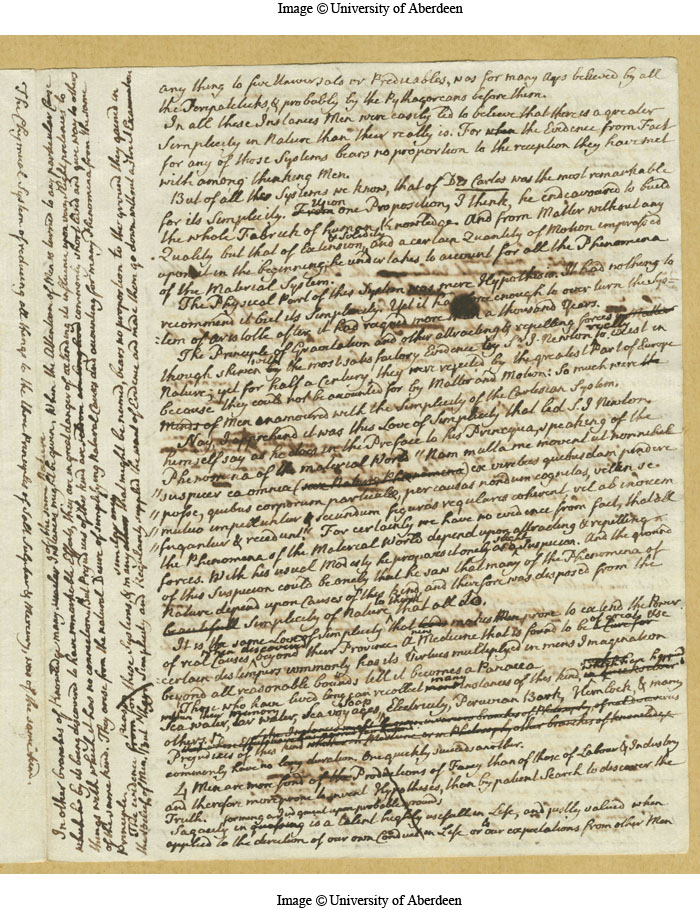 Image © University of Aberdeen
any thing to five Universals or Predicables, was for many Ages believed by all
the Peripateticks, & probably by the Pythagoreans before them.
In all these Instances Men were easily led to believe that there is a greater
Simplicity in Nature than their really is. For when the Evidence from Fact
for any of those Systems bears no proportion to the reception they have met
with among thinking Men.
But of all the Systems we know, that of Des Cartes was the most remarkable
for its Simplicity. Upon one Proposition, I think, he endeavoured to build
the whole Fabrick of human Knowledge. And from Matter without any
Quality but that of Extension, and a certain Quantity of Motion impressed
upon it in the beginning, he undertakes to account for all the Phenomena
of the Material System.
The Physical Part of this System was mere Hypothesis. It had nothing to
recommend it but its Simplicity. Yet it had force enough to over turn the Sys-
tem of Aristotle after it had raigned more a thousand Years.
The Principle of Gravitation and other attracting & repelling forces
though shewn by the most satisfactory Evidence by S. I Newton to exist in
Nature; yet for half a Century they were rejected by the greatest Part of Europe
because they could not be accounted for by Matter and Motion: So much were the
Minds of Men enamoured with the Simplicity of the Cartesian System.
Nay I apprehend it was this Love of Simplicity that led S. I Newton
himself say as he does in the Preface to his Principia, speaking of the
Phenomena of the material World "Nam multa me movent ut nonnihil
"suspicer ea omnia ex viribus quibusdam pendere
"posse, quibus corporum particulæ, per causas nondum cognitas, vel in se
"mutuo impelluntur & secundum figuras regulares cohærent vel ab invicem
"fugantur & recedunt." For certainly we have no evidence from fact, that all
the Phenomena of the Material World depend upon attracting & repelling
forces. With his usual Modesty he proposes it onely as a Suspicion. And the ground
of this Suspicion could be onely that he saw that many of the Phenomena of
Nature depend upon Causes of this kind, and therefore was disposed from the
Simplicity of Nature to think that all do.
It is the same Love of Simplicity that makes Men prone to extend the Power
of real Causes beyond their Province. A Medicine that is found to be of great use
in certain distempers commonly has its Virtues multiplied in mens Imagination
beyond all reasonable bounds till it becomes a Panacea
Those who have lived long can recollect many Instances of this kind
Sea water, tar water, Sea voyages Soap Electricity, Peruvian Bark, Hemlock, & many
others
Prejudices of this kind
commonly have no long duration. One quickly succeeds another.
4 Men are more fond of the Productions of Fancy than of those of Labour & Industry
and therefore more prone to invent Hypotheses, than by patient Search to discover the
Truth. forming a Judgment upon probable grounds
Sagacity in guessing is a talent highly usefull in Life, and justly valued when
applied to the direction of our own Conduct in Life or to our expectations from other Men
In other branches of knowledge many Instances might be given, When the Attention of Men is turned to any particular Cause
which has by its being discovered to have remarkable Effects, they are in great danger of extending its influence upon very slight pretences to
things with which it has no connection. But Prejudices of this kind are commonly short lived and give way to others
of the same kind. They arise from the natural Desire of simplifying natural Causes and accounting for many Phenomena from the same
Principle.
The evidence from fact for these Systems, & many that might be named, bears no proportion to the ground they gained in
the belief of Men, But their Simplicity and
The Chymical System of reducing all things to the three Principles of Salt Sulphur & Mercury, was of the same kind.
Image © University of Aberdeen